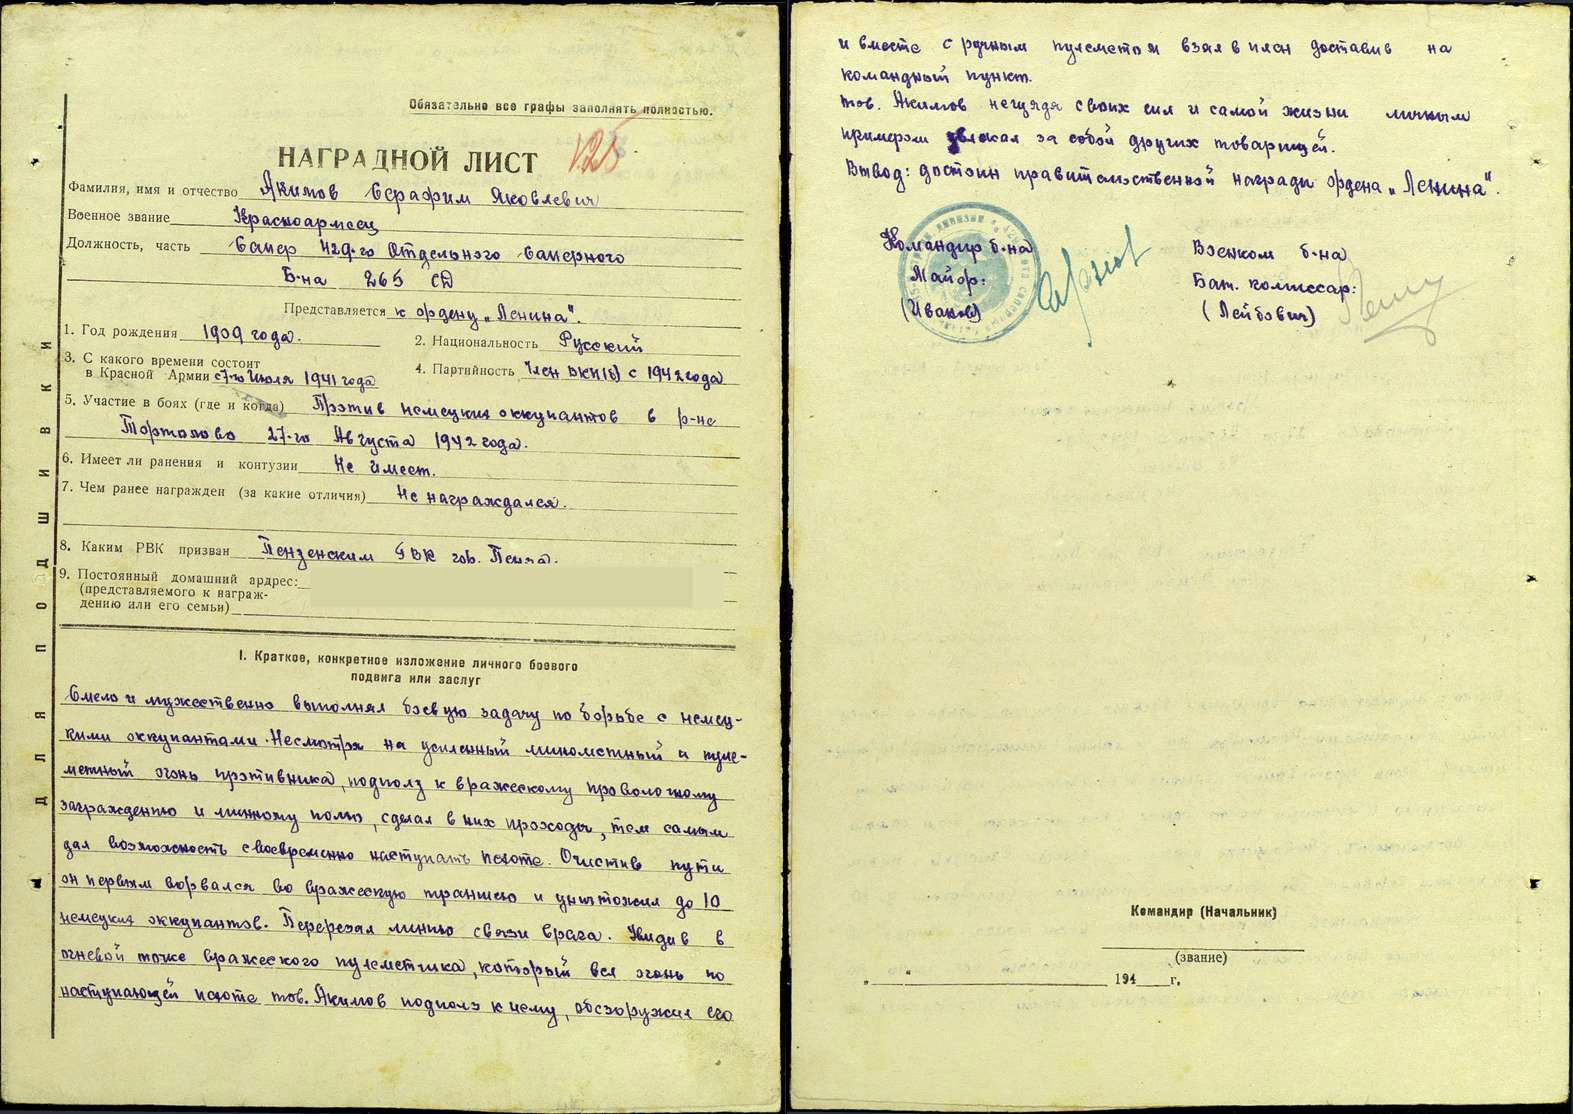 Обязательно все графы заполнять полностью.
НАГРАДНОЙ ЛИСТ
Фамилия, имя и отчество Акимов Серафим Яковлевич
Военное звание Красноармеец
Должность, часть Сапер 429-го Отдельного Саперного
Б-на 265 СД
Представляется к ордену „Ленина".
1. Год рождения 1909 года.
2. Национальность Русский
3. С какого времени состоит
в Красной Армии с 7-го Июля 1941 года
4. Партийность Член ВКП(б) с 1942 года
5. Участие в боях (где и когда) Против немецких оккупантов в р-не
Тортолово 27-го Августа 1942 года.
6. Имеет ли ранения и контузии Не имеет.
7. Чем ранее награжден (за какие отличия) Не награждался.
8. Каким РВК призван Пензенским ГВК гор. Пенза.
9. Постоянный домашний ардрес:
(представляемого к награж-
дению или его семьи)
ДЛЯ ПОДШИВКИ
I. Краткое, конкретное изложение личного боевого
подвига или заслуг
Смело и мужественно выполнял боевую задачу по борьбе с немец-
кими оккупантами. Несмотря на усиленный минометный и пуле-
метный огонь противника, подполз к вражескому проволочному
заграждению и минному полю, сделал в них проходы, тем самым
дал возможность своевременно наступать пехоте. Очистив пути
он первым ворвался во вражескую траншею и уничтожил до 10
немецких оккупантов. Перерезал линию связи врага. Увидив в
огневой точке вражеского пулеметчика, который вел огонь по
наступающей пехоте тов. Акимов подполз к нему, обезоружил его
и вместе с ручным пулеметом взял в плен доставив на
командный пункт.
тов. Акимов нещадя своих сил и самой жизни личным
примером увлекал за собой других товарищей.
Вывод: достоин правительственной награды ордена „Ленина".
Командир б-на
Майор:
(Иванов)
Военком б-на
Бат. комиссар:
(Лейбович)
Командир (Начальник)
(звание)
„ " 194 г.